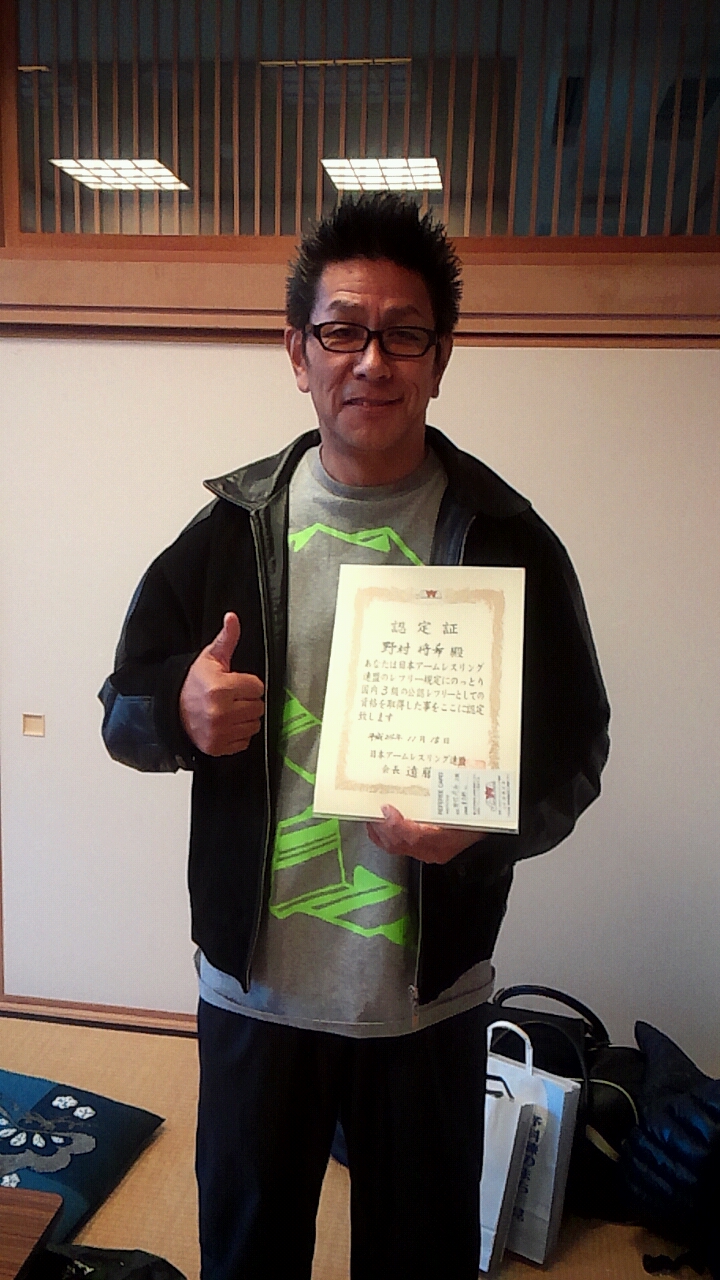 認定証
野村 将希 殿
あなたは日本アームレスリング
連盟のレフリー規定にのっとり
国内3級の公認レフリーとしての
資格を取得した事をここに認定
致します
11月18日
日本アームレスリング連盟
会長 遠藤
REFEREE CARD